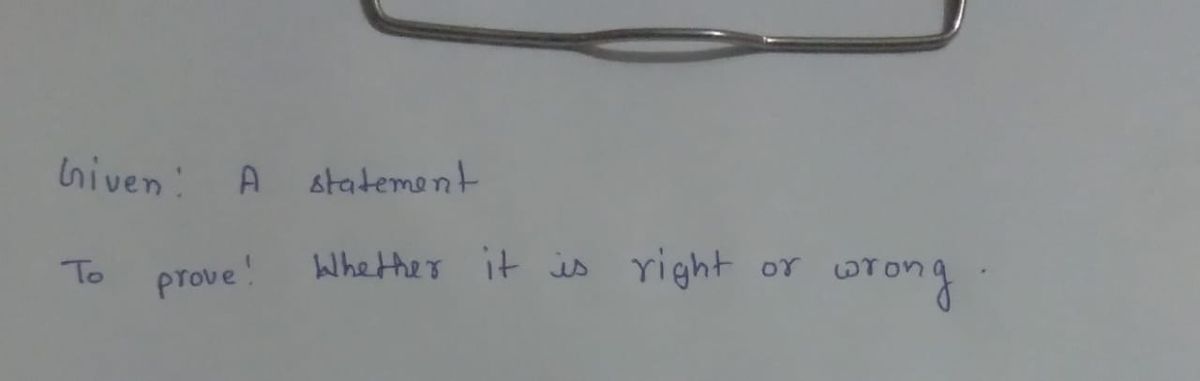 Given: A statement
To prove: Whether it is right or wrong.